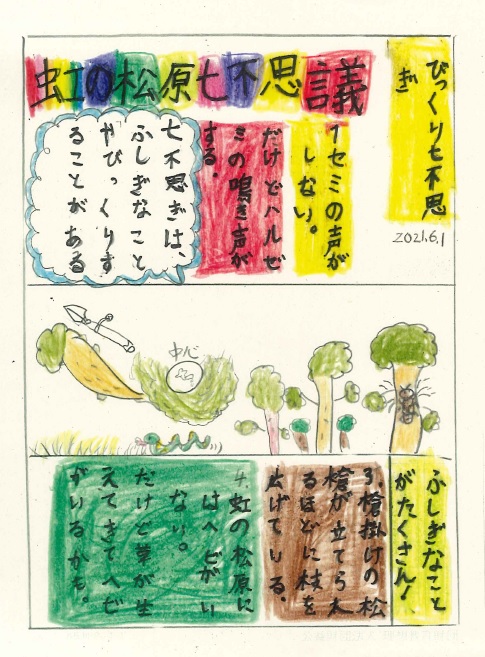 びっくり七不思
ぎ
2021.6.1
虹の松原七不思議
1 セミの声が
しない。
だけどハルゼ
ミの鳴き声が
する。
七不思ぎは、
ふしぎなこと
やびっくりす
ることがある
中心
ふしぎなこと
がたくさん！
3.槍掛けの松
槍が立てら木
るほどに枝を
広げている。
4.虹の松原に
はヘビがい
ない。
だけど草が生
えてきてヘビ
がいるかも。